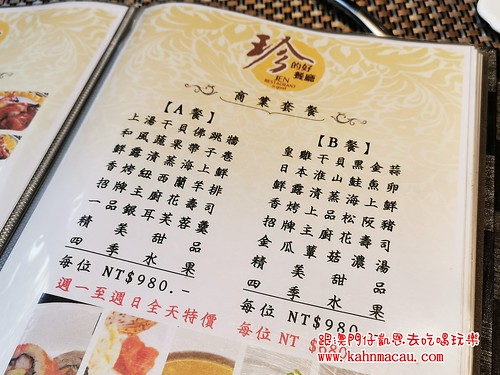 珍的好
餐廳
JEN
RESTAURANT
商業套餐
【A餐】
上湯干貝佛跳牆
和風蔬果帶子卷
鮮露清蒸海上鮮
香烤紐西蘭羊排
招牌主廚花壽司
一品銀耳芙蓉羹
精美甜品
四季水果
每位 NT$980.-
週一至週日全天特價
【B餐】
皇雞干貝黑金蒜
日本淮山鮭魚卵
鮮露清蒸海上鮮
香烤上品松阪豬
招牌主廚花壽司
金瓜蕈菇濃湯
精美甜品
四季水果
每位 NT$980
每位 NT $680
跟澳門仔凱恩去吃喝玩樂
www.kahnmacau.com